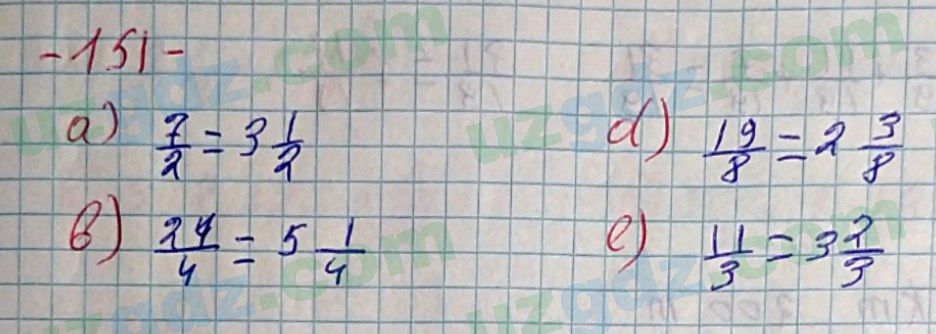 -151-
a) 7/2 = 3 1/2
d) 19/8 = 2 3/8
b) 24/4 = 5 1/4
e) 11/3 = 3 2/3
uzgdz.com